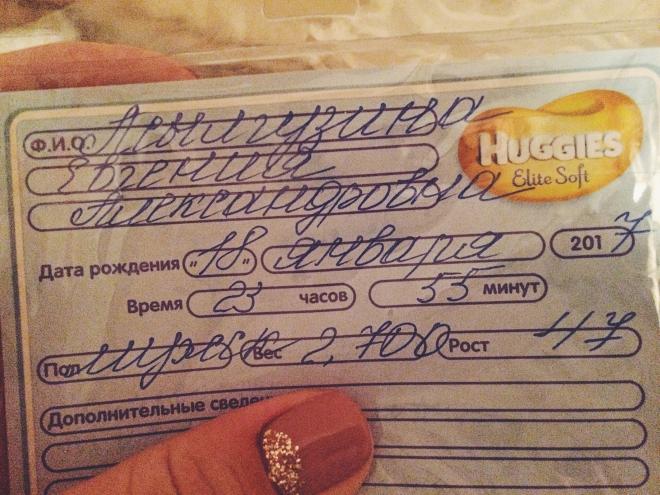 Ф.И.О.
HUGGIES
Elite Soft
Евгения
Александровна
Дата рождения "18" января 2017
Время 23 часов 55 минут
Пол мужск Вес 2,700 Рост 47
Дополнительные сведе